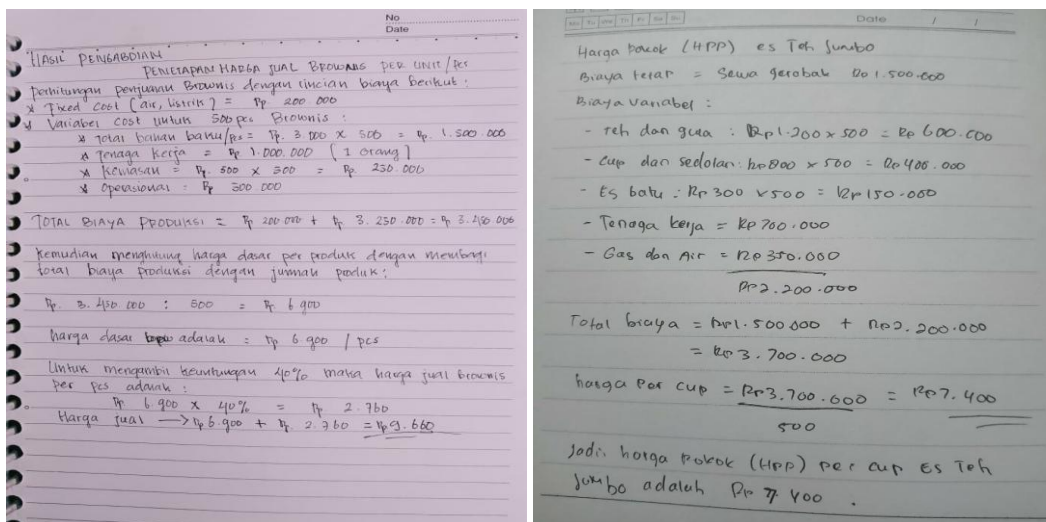 No
Date
HASIL PENGABDIAN
PENETAPAN HARGA JUAL BROWNIS PER UNIT / Pcs
Perhitungan penjualan Brownis dengan rincian biaya berikut :
* Fixed Cost (air, listrik) = Rp. 200 000
* Variabel Cost untuk 500 pcs Brownis :
* Total bahan baku/pcs = Rp. 3.000 x 500 = Rp. 1.500.000
* Tenaga Kerja = Rp 1.000.000 (1 orang)
* Kemasan = Rp. 500 x 500 = Rp. 250.000
* Operasional : Rp 500 000
TOTAL BIAYA PRODUKSI = Rp 200 000 + Rp 3.250.000 = Rp 3.450 000
Kemudian menghitung harga dasar per produk dengan membagi
total biaya produksi dengan jumlah produk :
Rp. 3.450.000 : 500 = Rp 6 900
harga dasar adalah = Rp 6.900 / pcs
Untuk mengambil keuntungan 40% maka harga jual brownis
per pcs adalah :
Rp 6.900 x 40% = Rp 2.760
Harga jual → Rp 6.900 + Rp 2.760 = Rp 9.660
Date / /
Harga Pokok (HPP) es Teh Jumbo
Biaya tetap = Sewa gerobak Rp 1.500.000
Biaya variabel :
- Teh dan gula : Rp1.200 x 500 = Rp 600.000
- Cup dan sedotan : Rp800 x 500 = Rp 400.000
- Es batu : Rp 300 x 500 = Rp 150.000
- Tenaga kerja = Rp 700.000
- Gas dan Air = Rp 350.000
Rp 2.200.000
Total biaya = Rp1.500.000 + Rp2.200.000
= Rp 3.700.000
harga Per cup = Rp3.700.000 = Rp7.400
500
Jadi, harga Pokok (HPP) per cup Es Teh
Jumbo adalah Rp 7.400 .